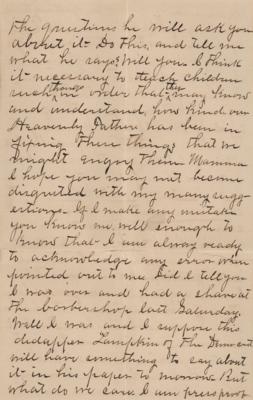 the questions he will ask you
about it - Do this, and tell me
what he says? Will you. I think
it necessary to teach children
such things in order that they may know
and understand, how kind our
Heavenly Father has been in
giving these things that we
might enjoy them. Mamma
I hope you may not become
disgusted with my many sugg
estions. If I make any mistake
you know me well enough to
know that I am alway ready
to acknowledge any error when
pointed out to me. Did I tell you
I was over and had a shave at
the barbershop last Saturday.
Well I was and I suppose this
didapper Lampkin of the
will have something to say about
it in his paper to morrow. But
what do we care. I am press proof